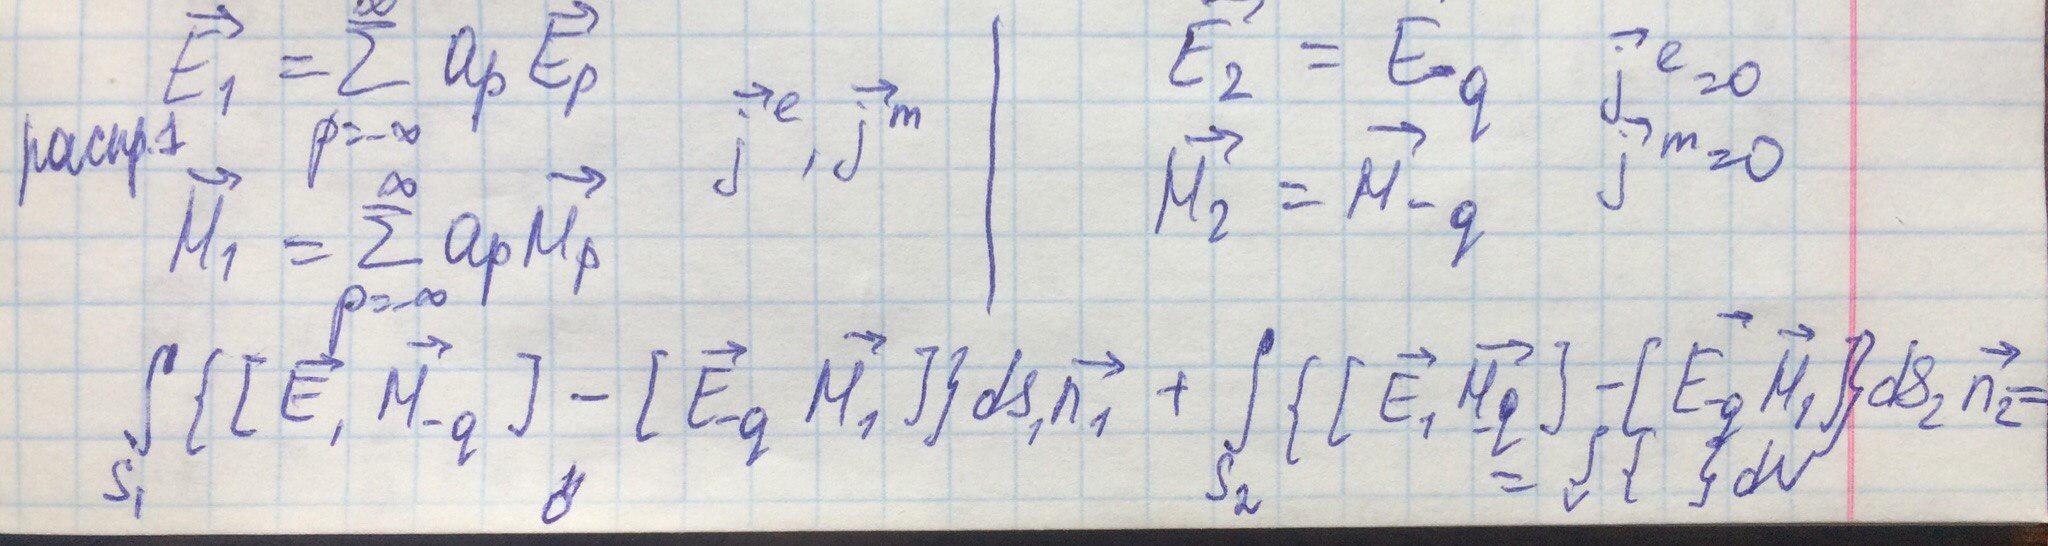 E⃗₁ = ∑_{p=-∞}^{∞} aₚ E⃗ₚ   j⃗ᵉ, j⃗ᵐ | E⃗₂ = E⃗_{-q}   j⃗ᵉ = 0
распр.1
H⃗₁ = ∑_{p=-∞}^{∞} aₚ H⃗ₚ | H⃗₂ = H⃗_{-q}   j⃗ᵐ = 0
∫_{S₁} {[E⃗₁ H⃗_{-q}] - [E⃗_{-q} H⃗₁]} ds₁ n⃗₁ + ∫_{S₂} {[E⃗₁ H⃗_{-q}] - [E⃗_{-q} H⃗₁]} ds₂ n⃗₂ =
= ∫_{v} { } dv